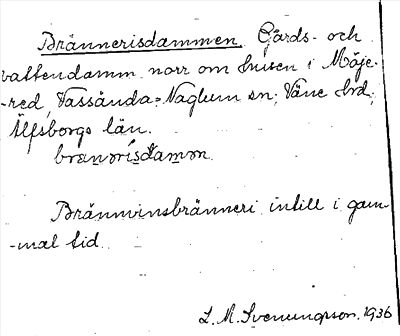 Brännerisdammen. Gårds- och
vattendamm norr om husen i Mäje-
-red, Vassända=Naglum sn; Väne hd;
Älfsborgs län.
Brännvinsbränneri intill i gam-
-mal tid.
L. M. Svenungsson. 1936